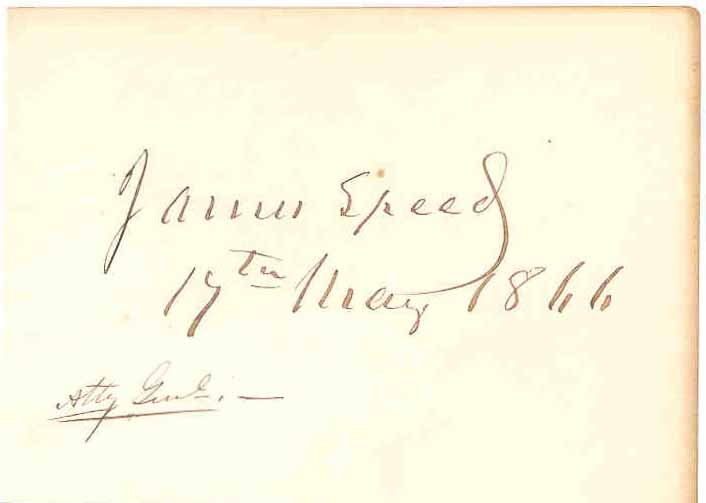 James Speed
17th May 1866
Atty Genl. —